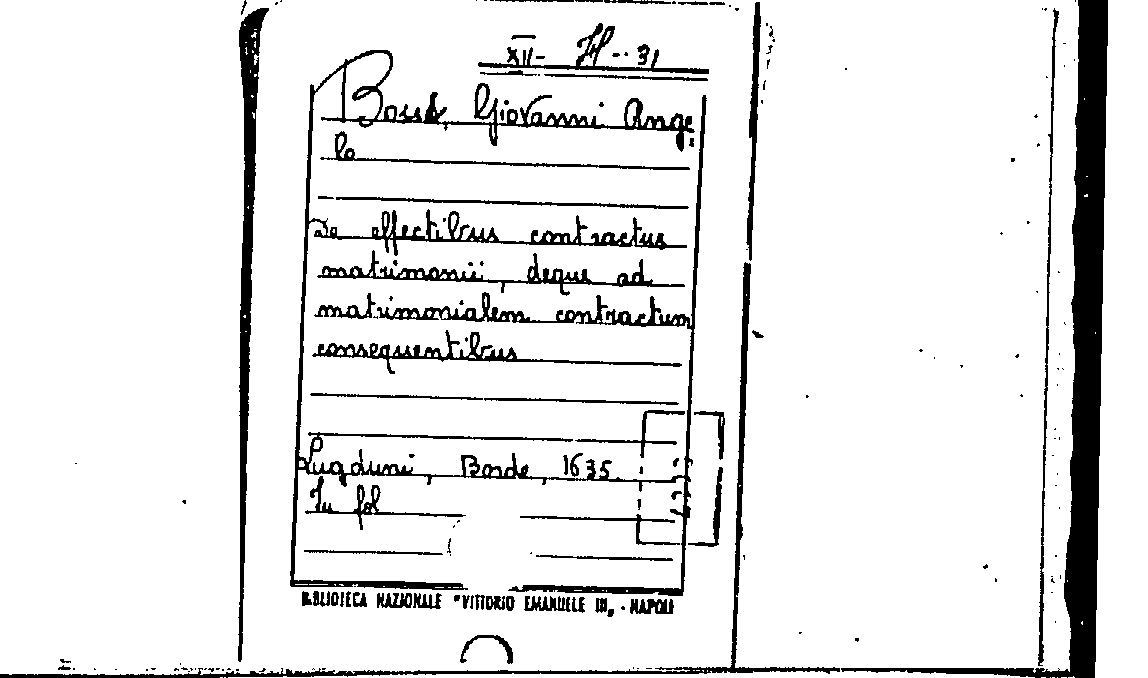 XII- H-- 31
Bossi, Giovanni Ange-
lo
De effectibus contractus
matrimonii, deque ad
matrimonialem contractum
consequentibus
Lugduni, Borde, 1635.
In fol
BIBLIOTECA NAZIONALE "VITTORIO EMANUELE III" - NAPOLI